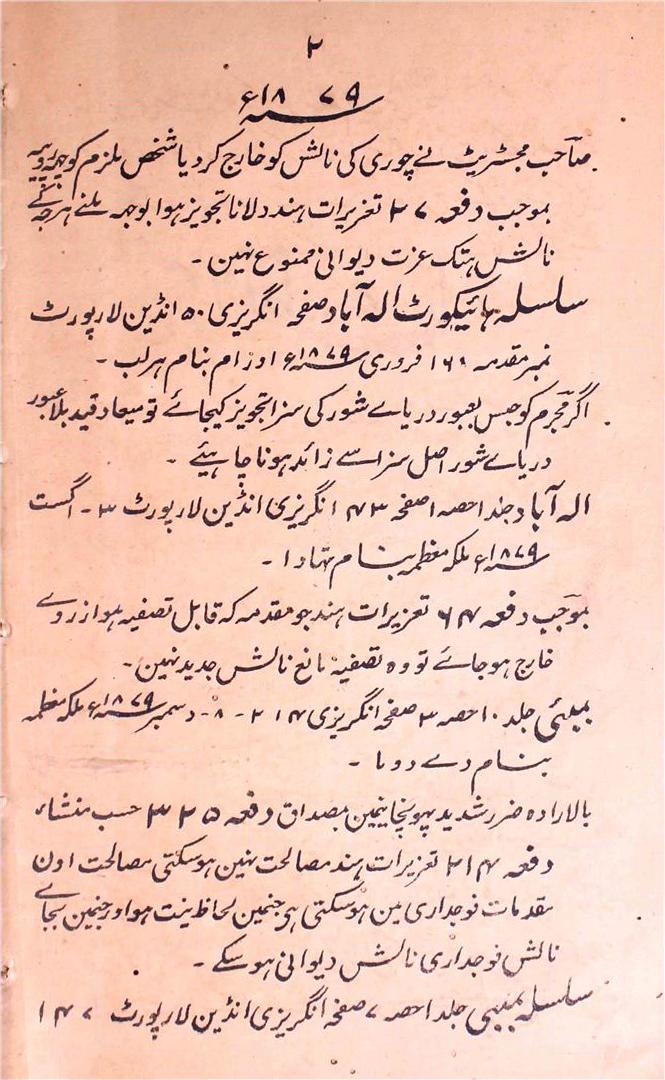 ۲
سنہ ۱۸۷۹ء
صاحب مجسٹریٹ نے چوری کی نالش کو خارج کردیا شخص ملزم کو
بموجب دفعہ ۲۷ تعزیرات ہند دلانا تجویز ہوا بوجہ ملنے ہرجہ کے
نالش ہتک عزت دیوانی ممنوع نہین ۔
سلسلہ ہائیکورٹ الہ آباد صفحہ انگریزی ۵۰ انڈین لا رپورٹ
نمبر مقدمہ ۱۶ فروری سنہ ۱۸۷۹ء اوزام بنام ہرلب ۔
اگر مجرم کو حبس بعبور دریاے شور کی سزا تجویز کیجائے تو میعاد قید بلا عبور
دریاے شور اصل سزا سے زائد ہونا چاہیئے ۔
الہ آباد جلد ا حصہ ا صفحہ ۴۳ انگریزی انڈین لا رپورٹ ۳ ۔ اگست
سنہ ۱۸۷۹ء ملکہ معظمہ بنام تہادا ۔
بموجب دفعہ ۶۴ تعزیرات ہند جو مقدمہ کہ قابل تصفیہ ہو از روے
خارج ہوجاے تو وہ تصفیہ مانع نالش جدید نہین ۔
بمبئی جلد ۱۰ حصہ ۳ صفحہ انگریزی ۲۱۴ ۔ ۸ ۔ دسمبر سنہ ۱۸۷۹ء ملکہ معظمہ
بنام دے دوما ۔
بالارادہ ضرر شدید پہونچانیمین بمصداق دفعہ ۳۲۵ حسب منشاء
دفعہ ۲۱۴ تعزیرات ہند مصالحت نہین ہوسکتی مصالحت اون
مقدمات فوجداری مین ہوسکتی ہی جنمین لحاظ نیت ہو اور جنمین بجاے
نالش فوجداری نالش دیوانی ہوسکے ۔
سلسلہ بمبیی جلد ا حصہ ۷ صفحہ انگریزی انڈین لا رپورٹ ۱۴۷